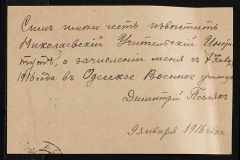 Симъ имѣю честь извѣстить
Николаевскій Учительскій Инсти-
тутъ, о зачисленіи меня съ 1 Янв.
1916 года въ Одесское Военное училище
Дмитрій
9 января 1916 года